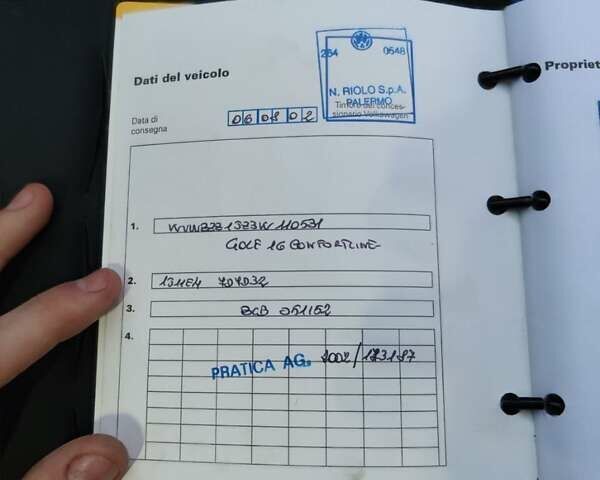 264 0548
N. RIOLO S.p.A.
PALERMO
Timbro del conces-
sionario Volkswagen
Dati del veicolo
Propriet
Data di
consegna
06 08 02
1. WVWZZZ1JZ3W110531
GOLF 16 CONFORTLINE
2. 1J11E4
3. BCB 051152
4.
PRATICA AG. 2002/173187